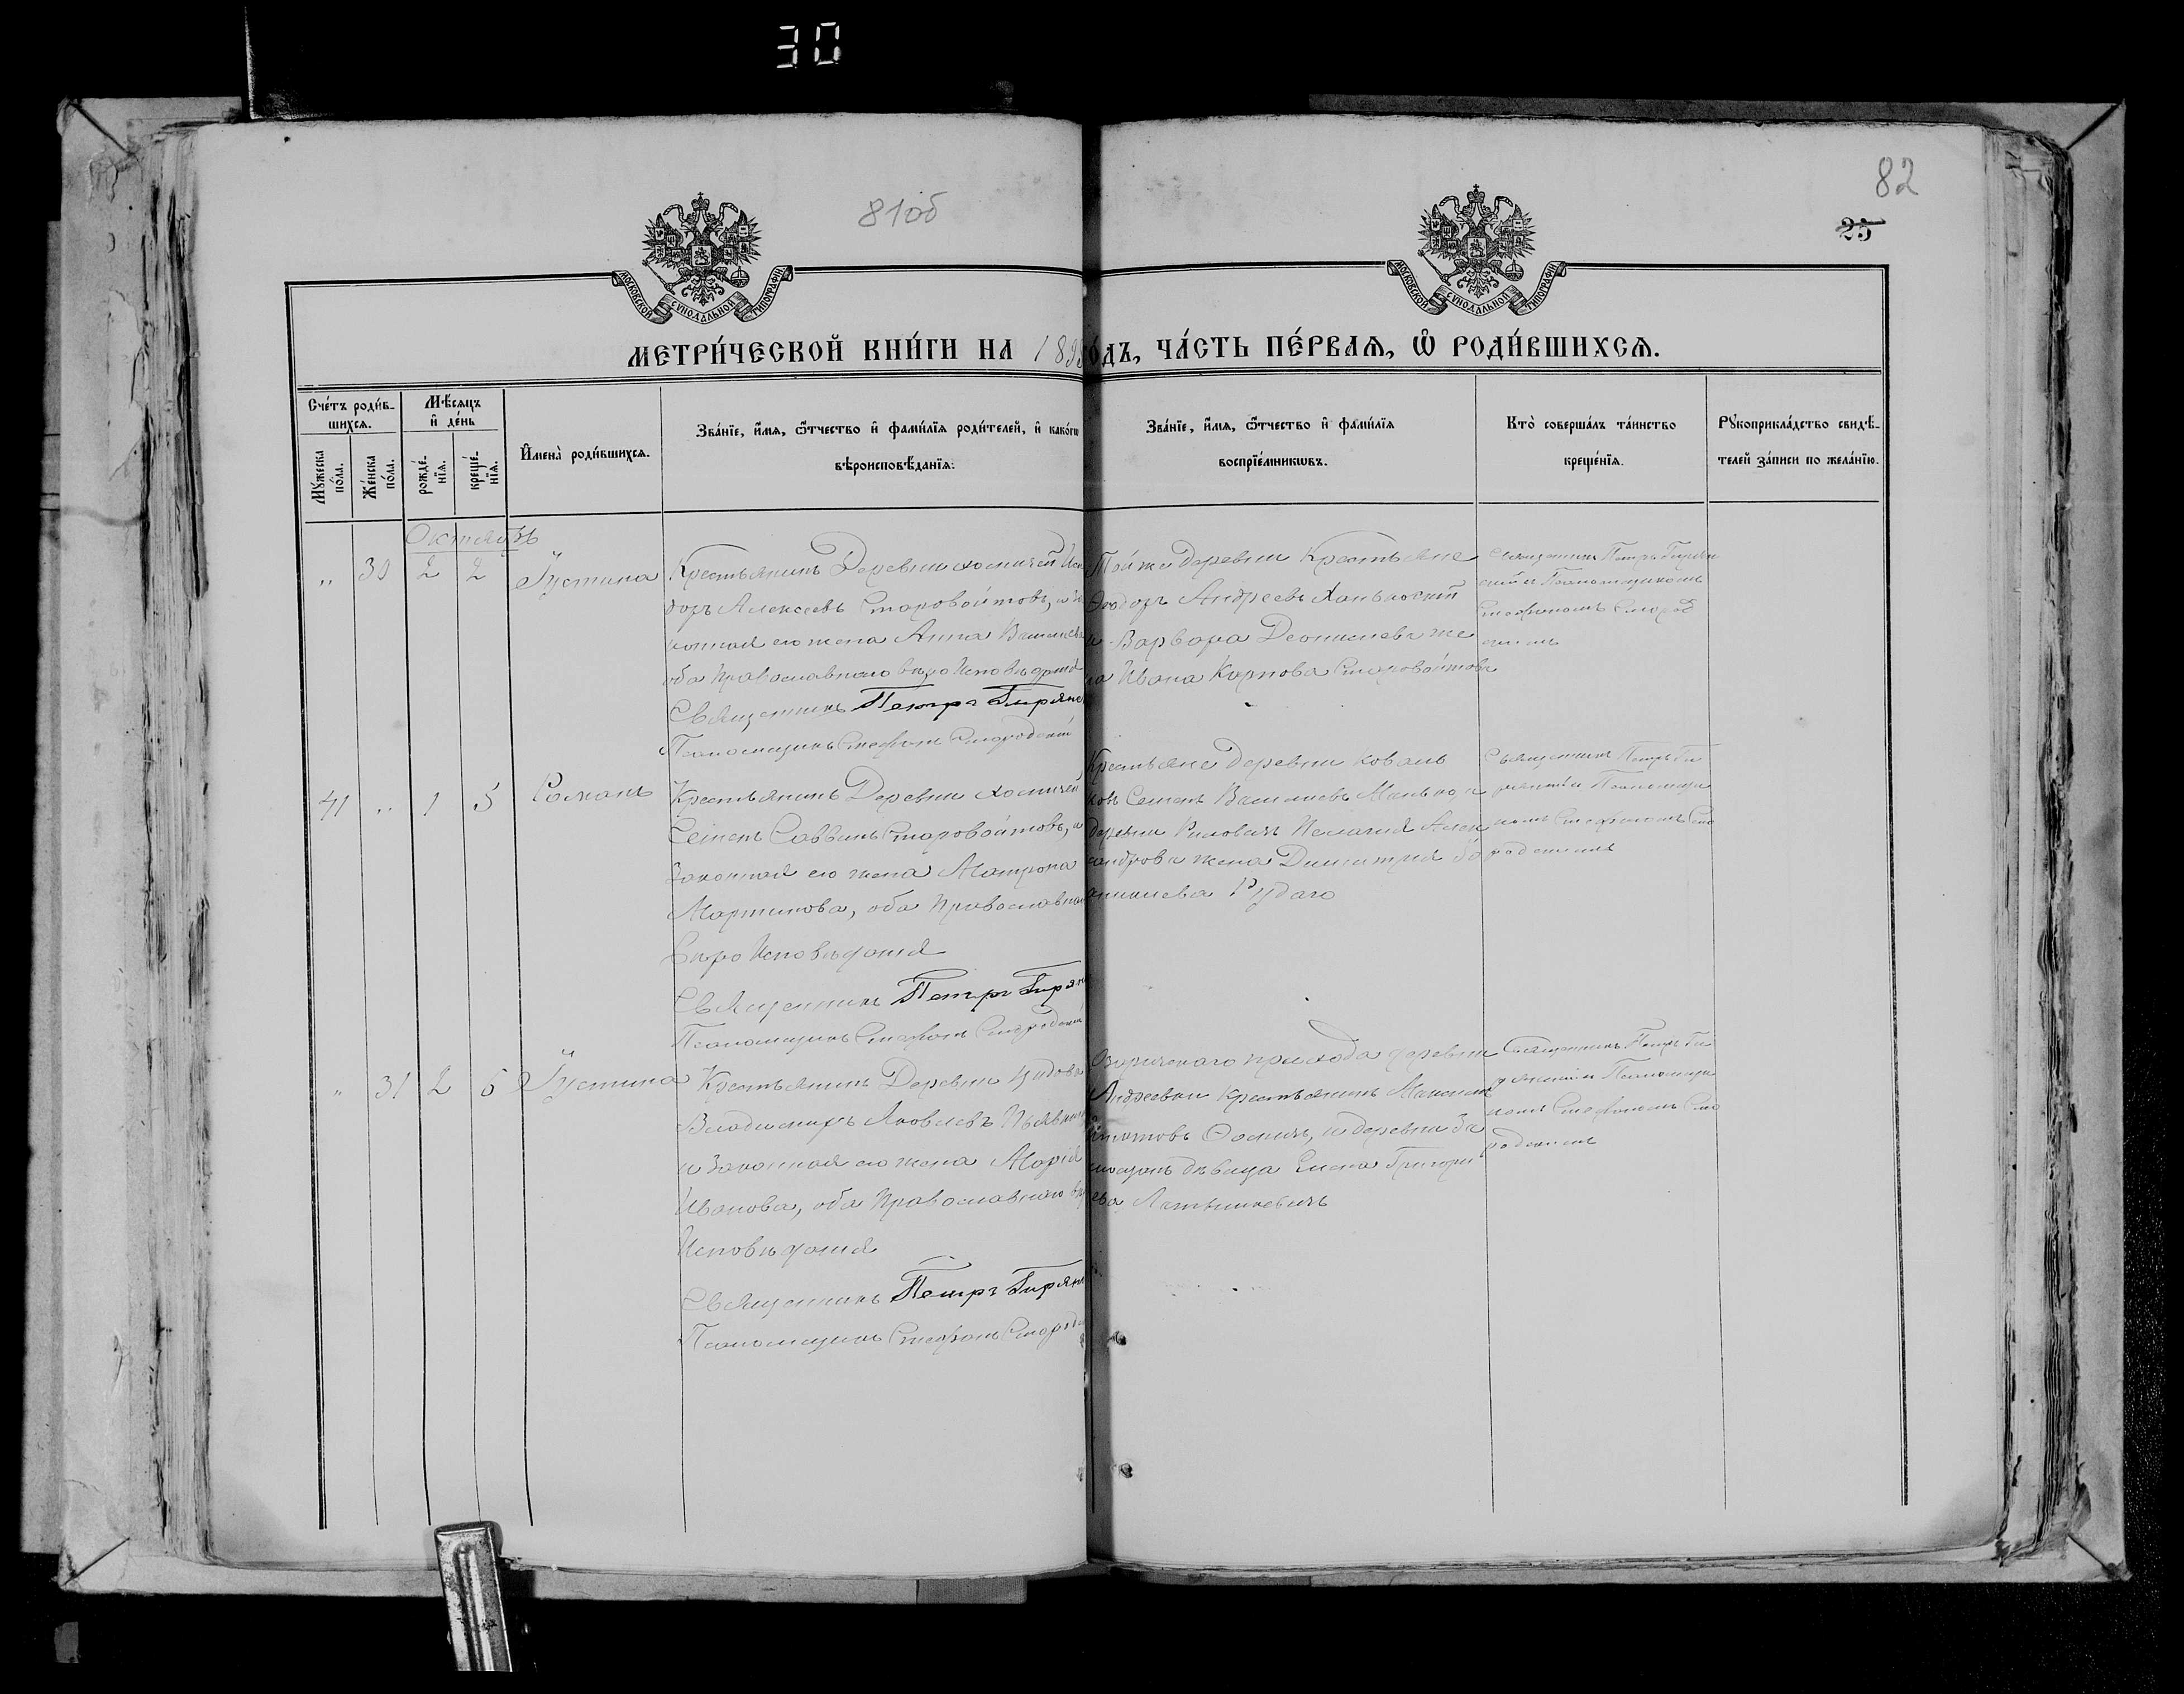 30
81об
82
25
МОСКОВСКОЙ СУНОДАЛЬНОЙ ТИПОГРАФІИ
МОСКОВСКОЙ СУНОДАЛЬНОЙ ТИПОГРАФІИ
МЕТРИ́ЧЕСКОЙ КНИ́ГИ НА 189 го́дъ, ЧА́СТЬ ПЕ́РВАЯ, Ѽ РОДИ́ВШИХСЯ.
Сче́тъ роди́в-
шихся.
Мꙋжеска по́ла.
Же́нска по́ла.
Мѣ́сяцъ
и҆ де́нь
рожде́-
нїя.
креще́-
нїя.
И҆мена̀ роди́вшихся.
Зва́нїе, и҆́мя, ѻ҆́тчество и҆ фами́лїя роди́телей, и҆ како́гѡ
вѣроисповѣ́данїя.
Зва́нїе, и҆́мя, ѻ҆́тчество и҆ фами́лїя
воспрїе́мникѡвъ.
Кто̀ соверша́лъ та́инство
креще́нїя.
Рꙋкоприкла́дство свидѣ́-
телей за́писи по жела́нїю.
Октябрь
„ 30 2 2 Іустина
Крестьянинъ Деревни Хомичей
доръ Алексеевъ Старовойтовъ, и За
конная его жена Анна Василiева
оба Православнаго вѣроИсповѣданiя
Священникъ Петръ Гирян
Псаломщикъ Стефанъ Смородскiй
Той же деревни Крестьяне
Ѳеодоръ Андреевъ Ханьковскiй
и Варвара Деонисiева же
на Ивана Карпова Старовойтова
Священникъ Петръ Гирян
скiй съ Псаломщикомъ
Стефаномъ Смород
скимъ
41 „ 1 5 Романъ
Крестьянинъ Деревни Хомичей
Семенъ Саввинъ Старовойтовъ, и
Законная его жена Матрона
Мартинова, оба Православнаго
ВѣроИсповѣданiя
Священникъ Петръ Гирян
Псаломщикъ Стефанъ Смородскiй
Крестьяне деревни Коваль
ковъ Семенъ Василiевъ Манько, и
деревни Пелагiя Алек
сандрова жена Димитрiя
Рудаго
Священникъ Петръ Ги
рянскiй съ Псаломщи
комъ Стефаномъ Смо
родскимъ
„ 31 2 5 Іустина
Крестьянинъ Деревни
Владимиръ Яковлевъ
и Законная его жена Марiя
Иванова, оба Православнаго вѣ
Исповѣданiя
Священникъ Петръ Гирян
Псаломщикъ Стефанъ Смород
Озаричскаго прихода деревни
Андреевки Крестьянинъ Максимъ
Ѳомичъ, и деревни За
дѣвица Елена Григорi
ева
Священникъ Петръ Ги
рянскiй съ Псаломщи
комъ Стефаномъ Смо
родскимъ